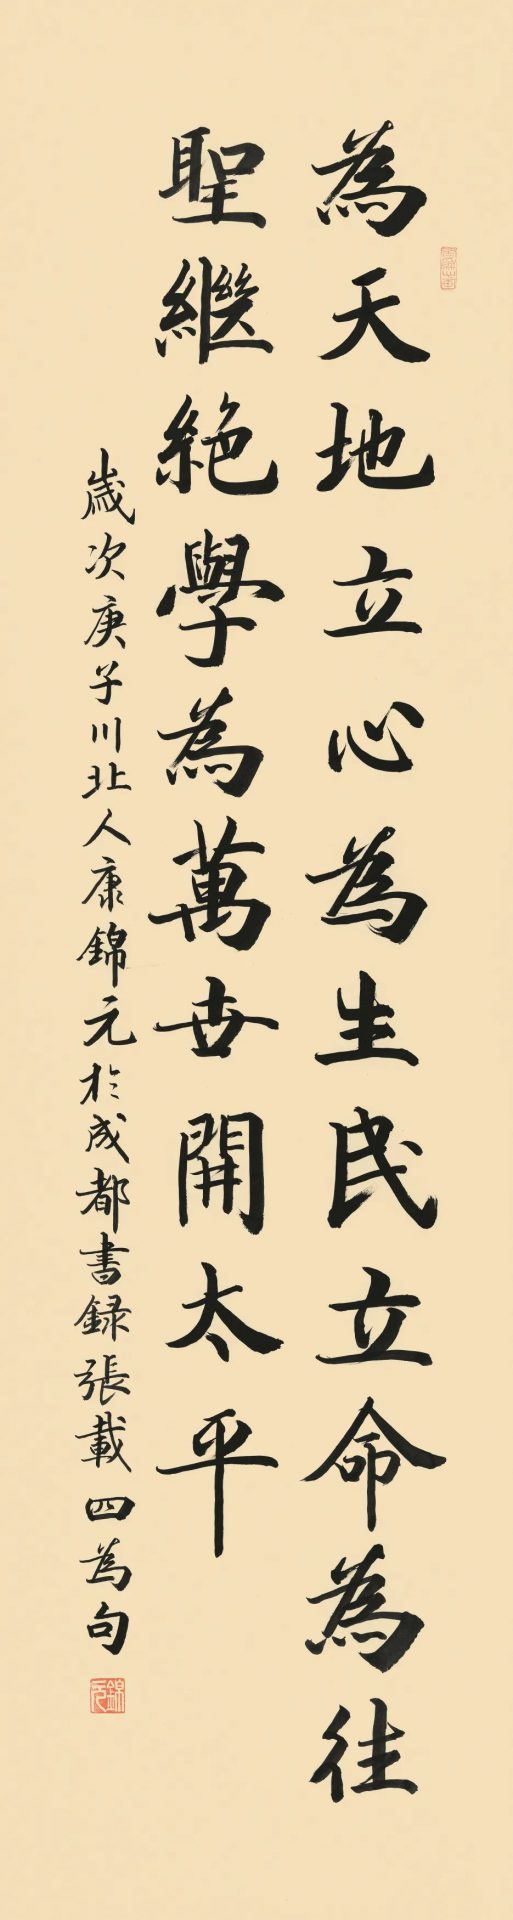 為天地立心為生民立命為往
聖繼絶學為萬世開太平
歲次庚子川北人康錦元於成都書録張載四為句
錦元